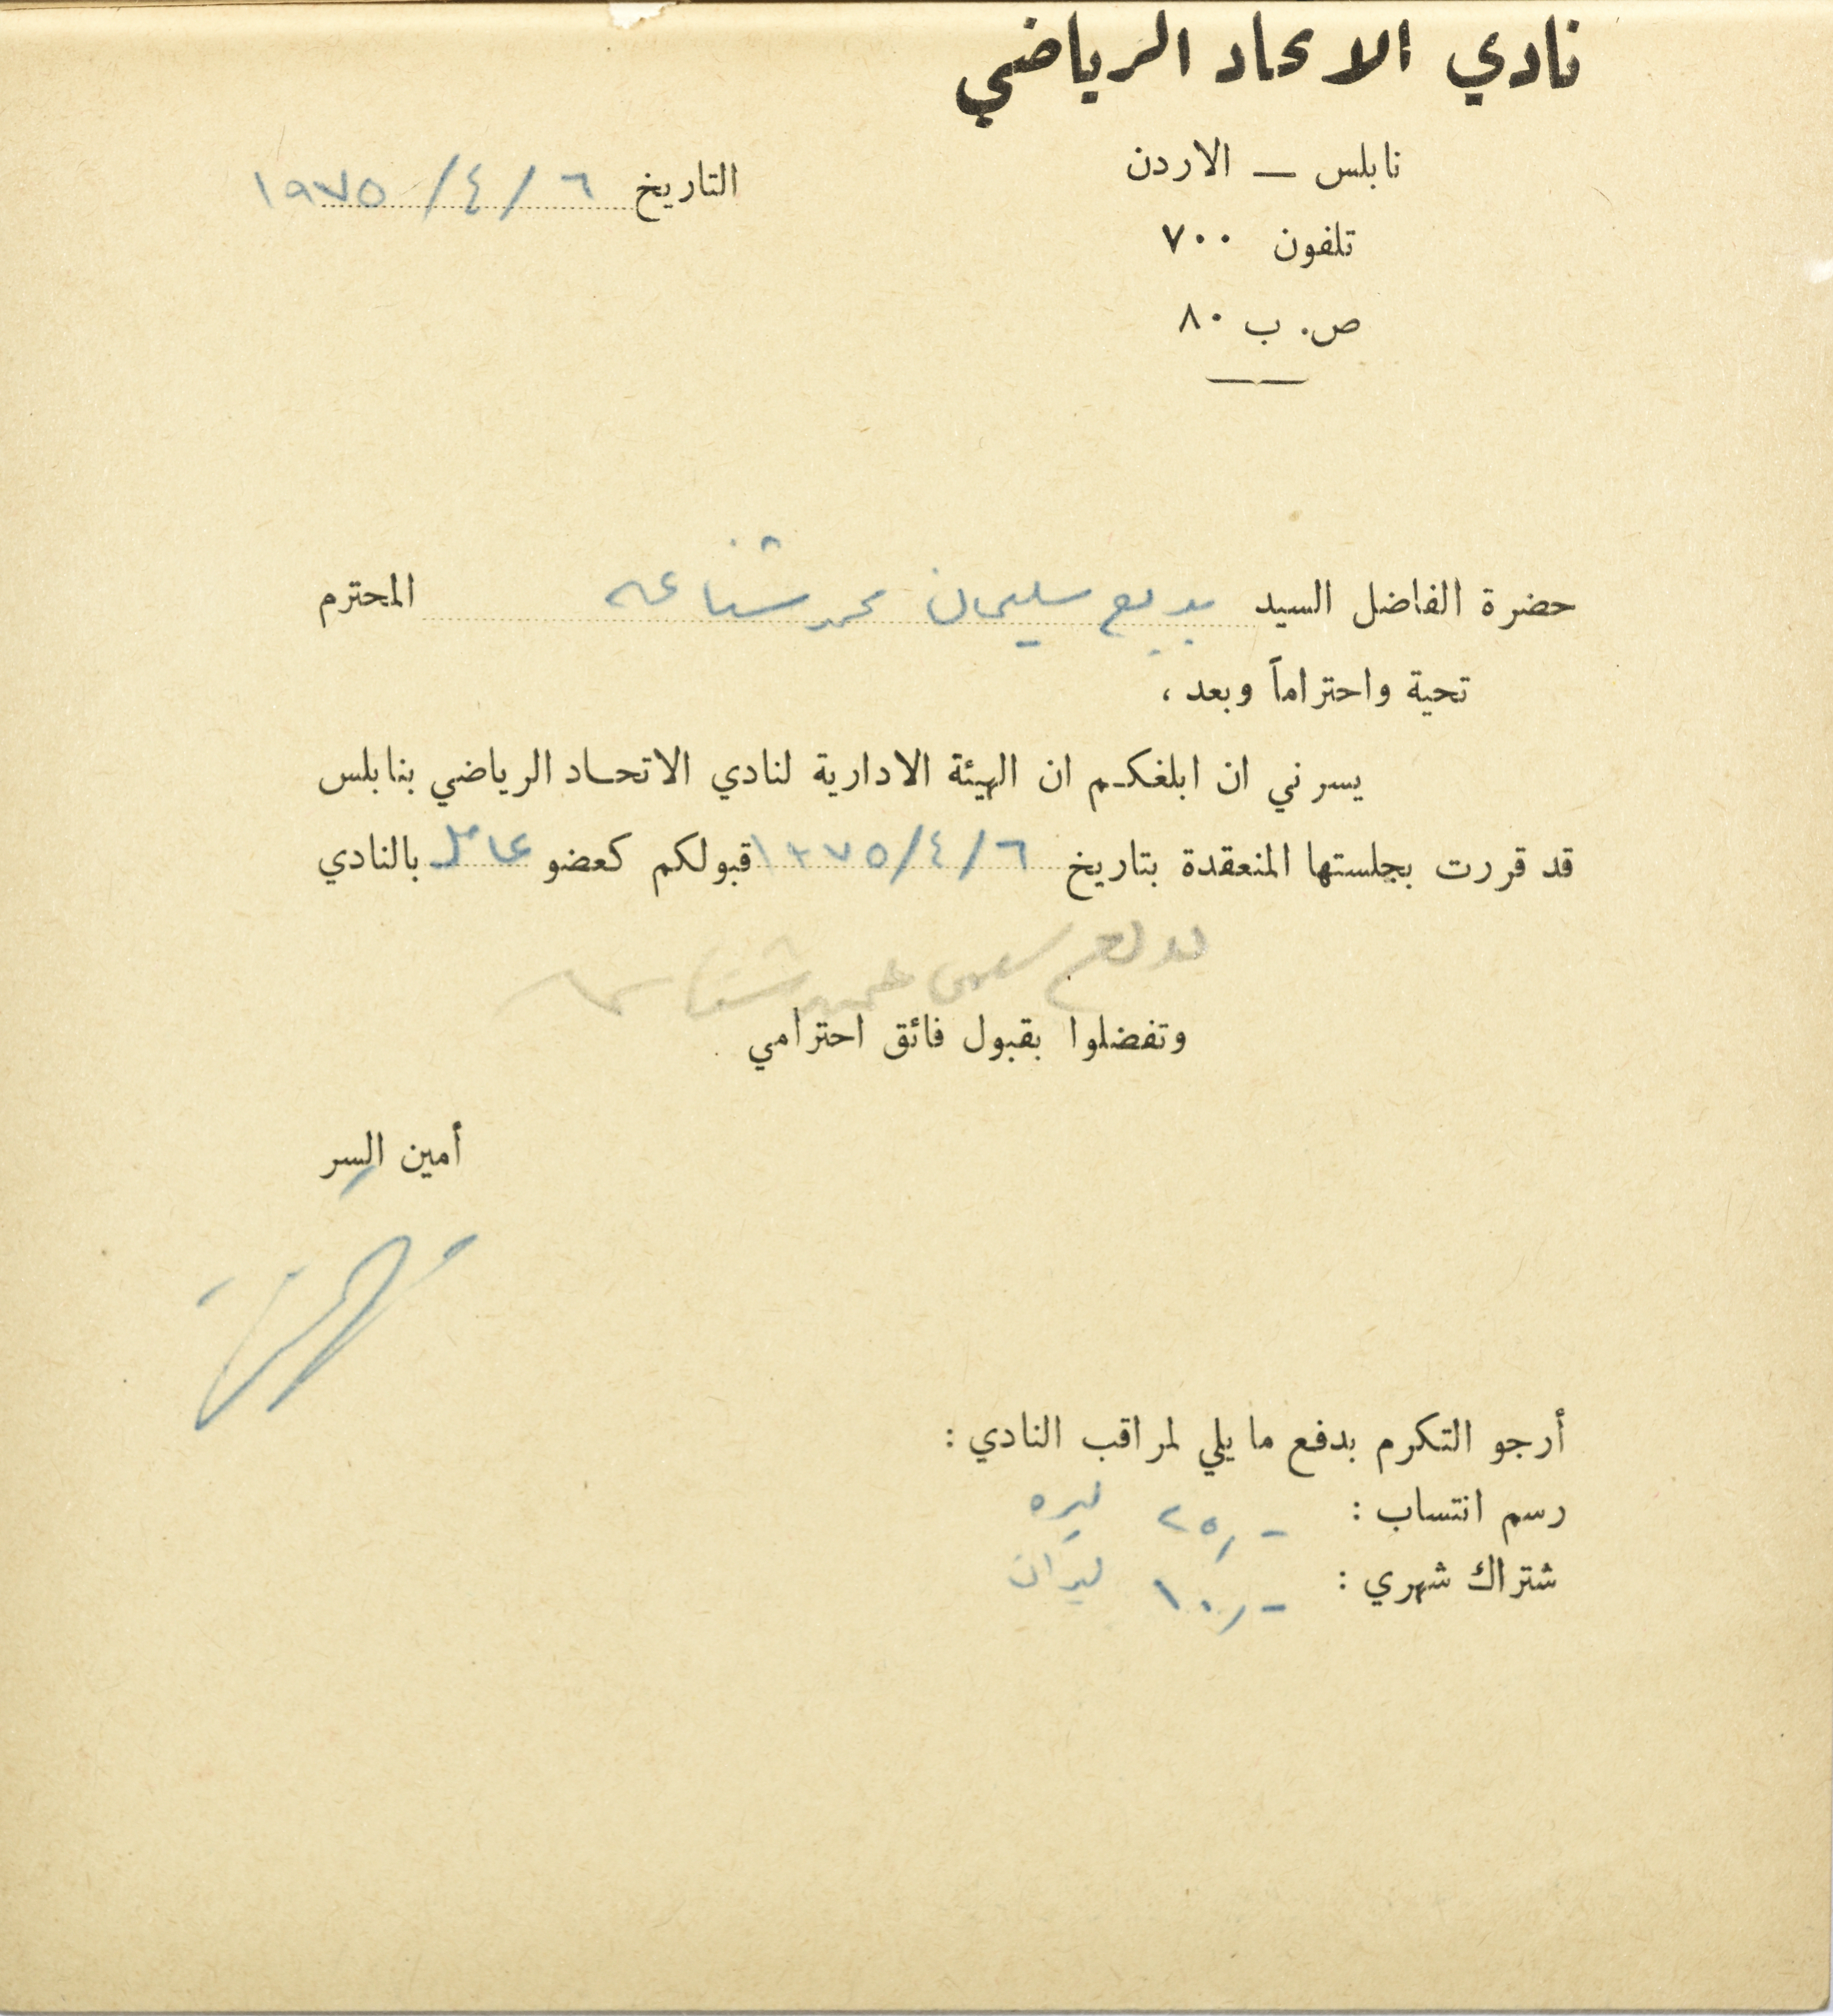 نادي الاتحاد الرياضي
نابلس — الاردن
التاريخ ٦ / ٤ / ١٩٧٥
تلفون ٧٠٠
ص. ب ٨٠
حضرة الفاضل السيد بديع سليمان محمد شناعه المحترم
تحية واحتراماً وبعد ،
يسرني ان ابلغكم ان الهيئة الادارية لنادي الاتحاد الرياضي بنابلس
قد قررت بجلستها المنعقدة بتاريخ ٦ / ٤ / ١٩٧٥ قبولكم كعضو عامل بالنادي
وتفضلوا بقبول فائق احترامي
أمين السر
أرجو التكرم بدفع ما يلي لمراقب النادي :
رسم انتساب : ٢٥,- ليره
شتراك شهري : ١٠,- ليرات